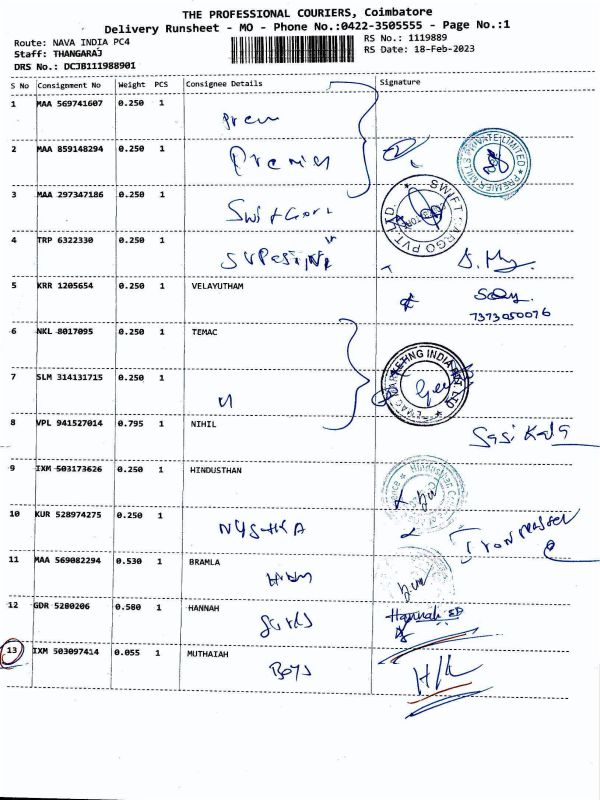 THE PROFESSIONAL COURIERS, Coimbatore
Delivery Runsheet - MO - Phone No.:0422-3505555 - Page No.:1
Route: NAVA INDIA PC4
RS No.: 1119889
Staff: THANGARAJ
RS Date: 18-Feb-2023
DRS No.: DCJB111988901
S No Consignment No Weight PCS Consignee Details Signature
1 MAA 569741607 0.250 1
Prem
2 MAA 859148294 0.250 1
Premier
PREMIER MILLS PRIVATE LIMITED
3 MAA 297347186 0.250 1
SWIFT CARGO PVT. LTD.
4 TRP 6322330 0.250 1
5 KRR 1205654 0.250 1 VELAYUTHAM
7373050076
6 NKL 8017095 0.250 1 TEMAC
7 SLM 314131715 0.250 1
MARKETING INDIA PVT LTD
8 VPL 941527014 0.795 1 NIHIL
Sasi Kala
9 IXM 503173626 0.250 1 HINDUSTHAN
Hindusthan
10 KUR 528974275 0.250 1
11 MAA 569082294 0.530 1 BRAMLA
12 GDR 5200206 0.580 1 HANNAH
Hannah
13 IXM 503097414 0.055 1 MUTHAIAH
Boys
H/L